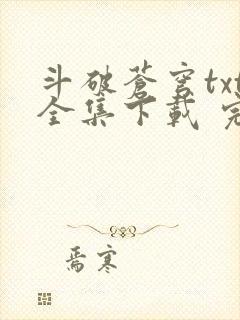 斗破苍穹txt
全集下载 完
焉寒